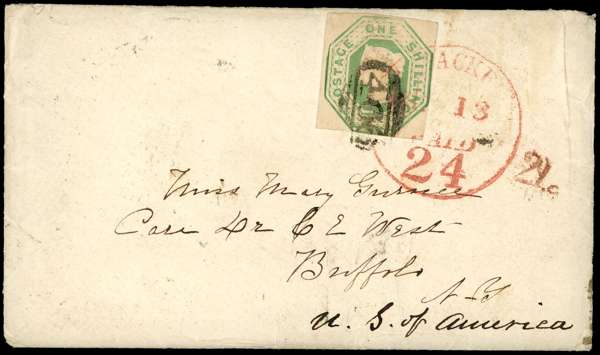 POSTAGE ONE SHILLING
PACKET
13
PAID
24
Miss Mary Gurnee
Care Dr C E West
Buffalo
N-Y
U. S. of America